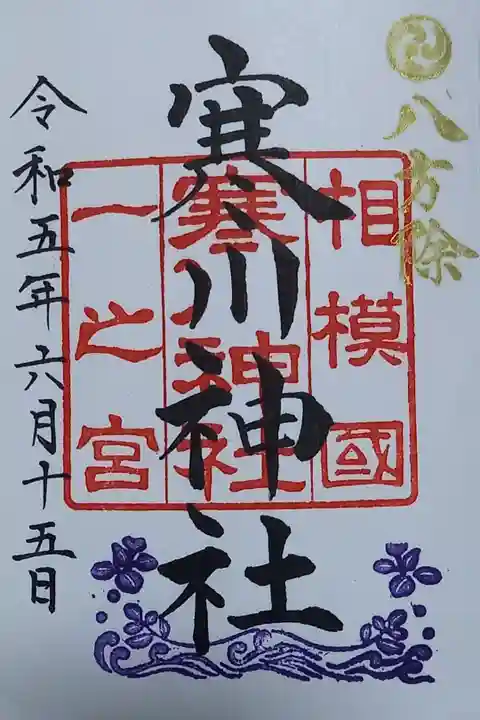 八方除
寒川神社
相模國
寒川神社
一之宮
令和五年六月十五日